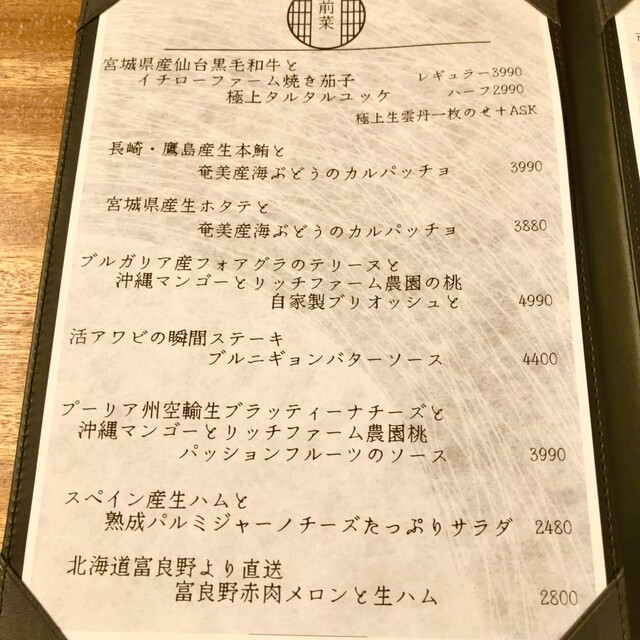 前菜
宮城県産仙台黒毛和牛と
イチローファーム焼き茄子 レギュラー3990
極上タルタルユッケ ハーフ2990
極上生雲丹一枚のせ+ASK
長崎・鷹島産生本鮪と
奄美産海ぶどうのカルパッチョ 3990
宮城県産生ホタテと
奄美産海ぶどうのカルパッチョ 3880
ブルガリア産フォアグラのテリーヌと
沖縄マンゴーとリッチファーム農園の桃
自家製ブリオッシュと 4990
活アワビの瞬間ステーキ
ブルニギョンバターソース 4400
プーリア州空輸生ブラッティーナチーズと
沖縄マンゴーとリッチファーム農園桃
パッションフルーツのソース 3990
スペイン産生ハムと
熟成パルミジャーノチーズたっぷりサラダ 2480
北海道富良野より直送
富良野赤肉メロンと生ハム 2800